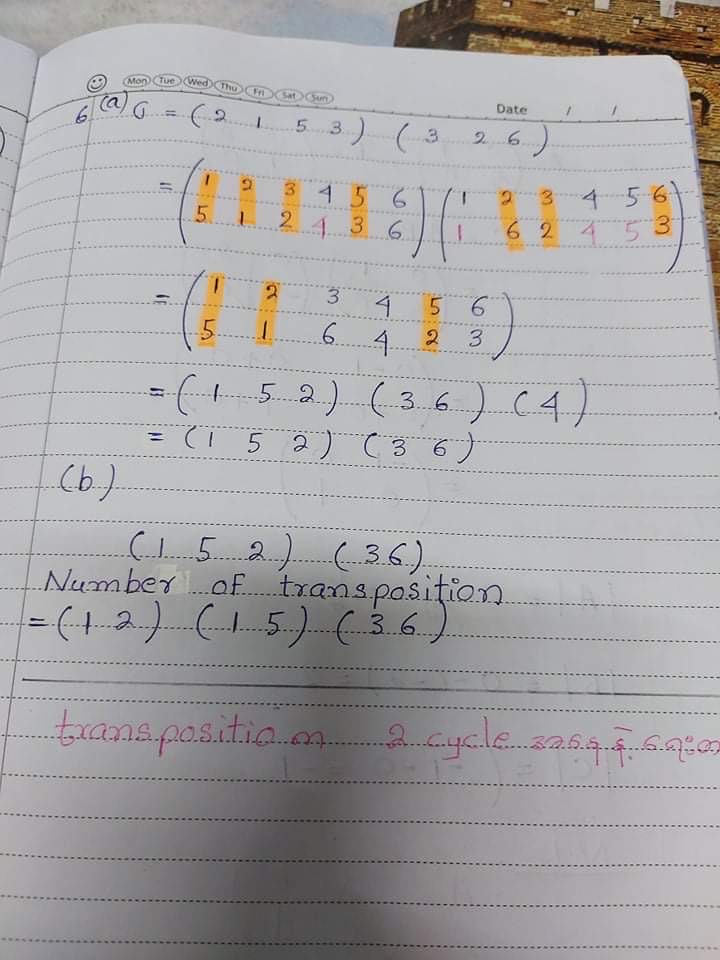 Mon Tue Wed Thu Fri Sat Sun
Date / /
6 (a) σ = ( 2 1 5 3 ) ( 3 2 6 )
= ( 1 2 3 4 5 6 ) ( 1 2 3 4 5 6 )
5 1 2 4 3 6 1 6 2 4 5 3
= ( 1 2 3 4 5 6 )
5 1 6 4 2 3
= ( 1 5 2 ) ( 3 6 ) ( 4 )
= ( 1 5 2 ) ( 3 6 )
(b)
( 1 5 2 ) ( 3 6 )
Number of transposition
= ( 1 2 ) ( 1 5 ) ( 3 6 )
transposition 2 cycle အနေနဲ့ ရေးတာ